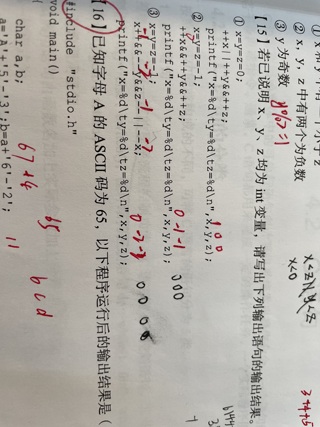 ② x、y、z 中有两个为负数
③ y 为奇数 y%2=1
【15】若已说明 x、y、z 均为 int 变量，请写出下列输出语句的输出结果。
① x=y=z=0;
++x||++y&&++z;
printf("x=%d\ty=%d\tz=%d\n",x,y,z); 1 0 0
② x=y=z=-1;
++x&&++y&&++z;
printf("x=%d\ty=%d\tz=%d\n",x,y,z); 0 -1 -1 000
③ x=y=z=-1;
x++&&--y&&z--||--x;
printf("x=%d\ty=%d\tz=%d\n",x,y,z);
【16】已知字母 A 的 ASCII 码为 65，以下程序运行后的输出结果是（
#include "stdio.h"
void main()
char a,b;
a='A'+'5'-'3';b=a+'6'-'2';
67+4
65
bcd
x<0